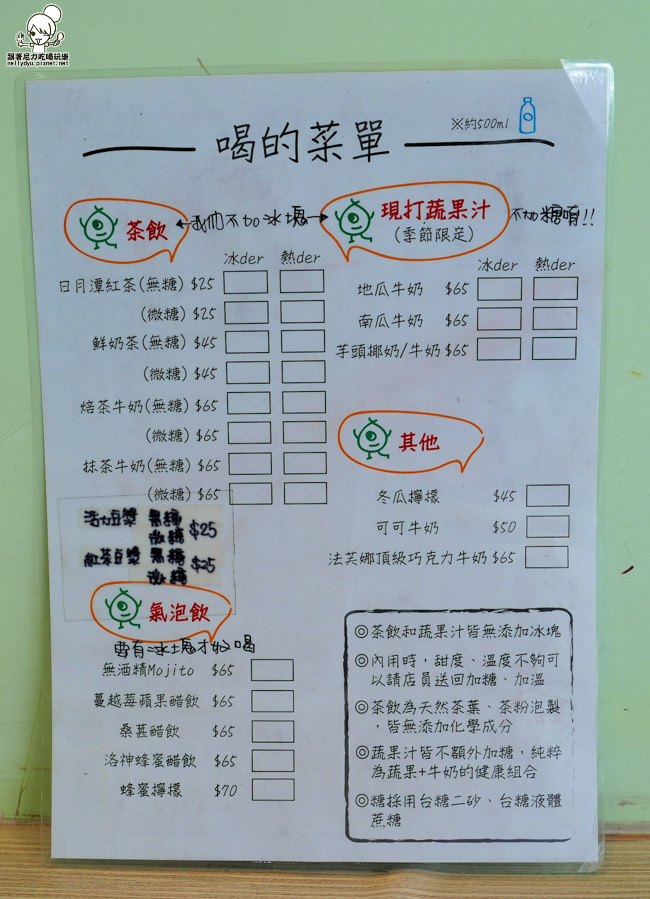 跟著尼力吃喝玩樂
nellydyu.pixnet.net
喝的菜單
※約500ml
茶飲
←我們不加冰塊→
冰der 熱der
日月潭紅茶(無糖) $25
(微糖) $25
鮮奶茶(無糖) $45
(微糖) $45
焙茶牛奶(無糖) $65
(微糖) $65
抹茶牛奶(無糖) $65
(微糖) $65
豆漿 無糖 $25
微糖
紅茶豆漿 無糖 $25
微糖
氣泡飲
要有冰塊才好喝
無酒精Mojito $65
蔓越莓蘋果醋飲 $65
桑葚醋飲 $65
洛神蜂蜜醋飲 $65
蜂蜜檸檬 $70
現打蔬果汁
(季節限定)
不加糖唷!!
冰der 熱der
地瓜牛奶 $65
南瓜牛奶 $65
芋頭椰奶/牛奶 $65
其他
冬瓜檸檬 $45
可可牛奶 $50
法芙娜頂級巧克力牛奶 $65
◎茶飲和蔬果汁皆無添加冰塊
◎內用時，甜度、溫度不夠可
以請店員送回加糖、加溫
◎茶飲為天然茶葉、茶粉泡製
，皆無添加化學成分
◎蔬果汁皆不額外加糖，純粹
為蔬果+牛奶的健康組合
◎糖採用台糖二砂、台糖液體
蔗糖